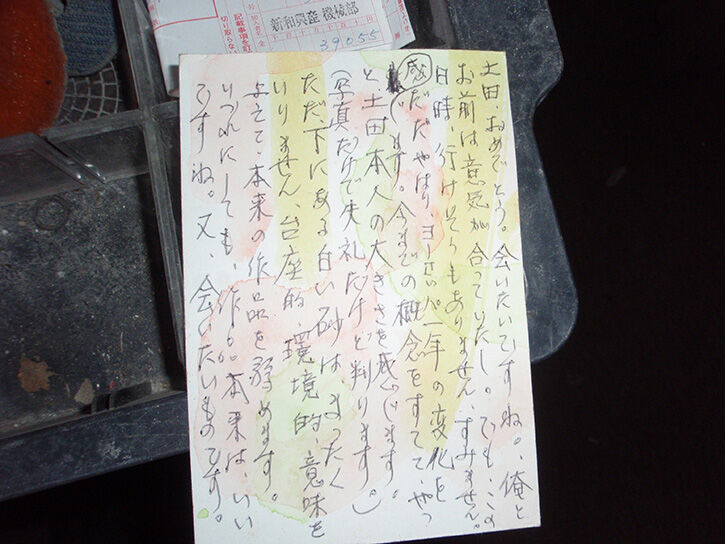 新和興産 機械部
39055
記載事項を訂
切り取らない
土田、おめでとう。会いたいですね。、俺と
お前は意気が合ていたし。でも、この
日時、行けそうもありません、すみません。
感 ただやはり、ヨーロッパ一年の変化を
じます。今までの概念をすてて、やっ
と、土田本人の大きさを感じます。
(写真だけで失礼だけど判ります。)
ただ、下にある白い砂はまったく
いりません、台座的、環境的、意味を
よえて、本来の作品を弱めます。
いづれにしても、作品本来は、いい
ですね。又、会いたいものです。